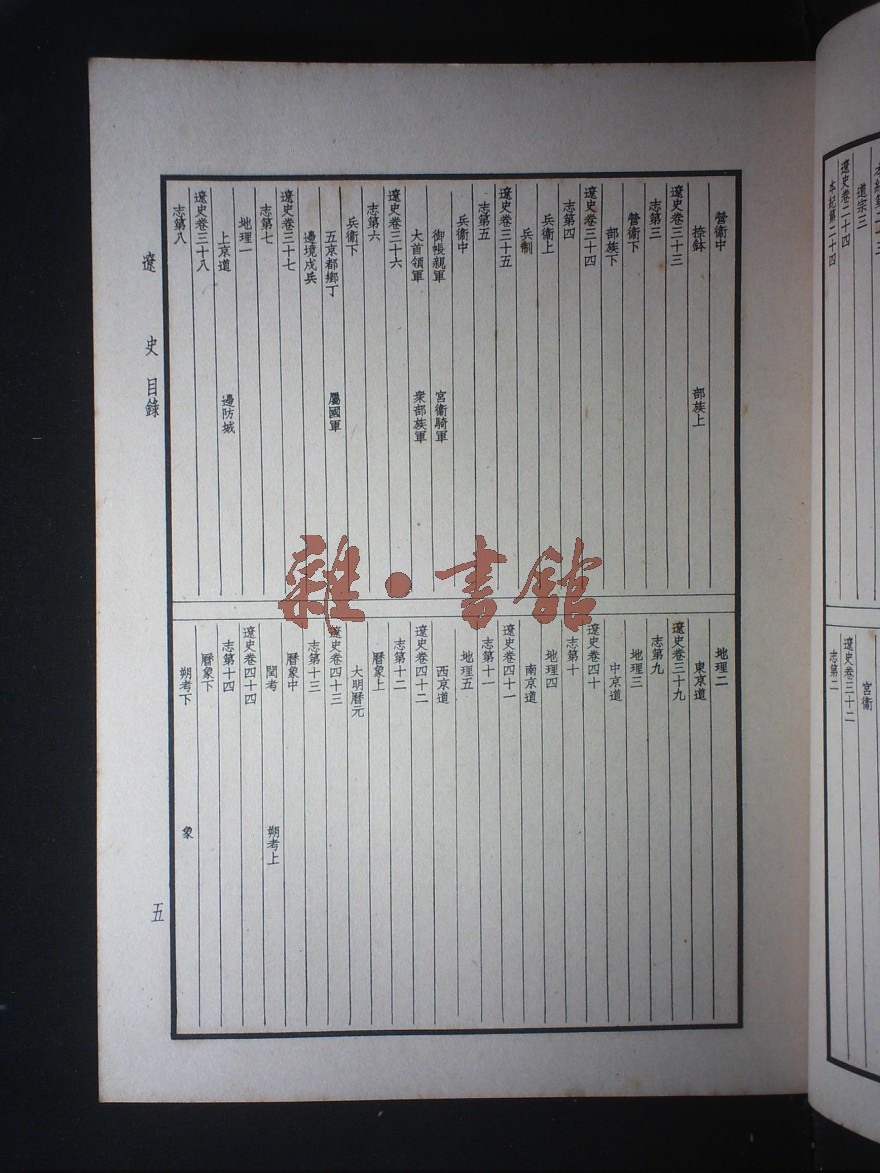 本紀第二十三
道宗三
遼史卷二十四
本紀第二十四
宮衞
遼史卷三十二
志第二
營衞中
捺鉢　部族上
遼史卷三十三
志第三
營衞下
部族下
遼史卷三十四
志第四
兵衞上
兵制
遼史卷三十五
志第五
兵衞中
御帳親軍　宮衞騎軍
大首領軍　衆部族軍
遼史卷三十六
志第六
兵衞下
五京都鄉丁　屬國軍
邊境戍兵
遼史卷三十七
志第七
地理一
上京道　邊防城
遼史卷三十八
志第八
地理二
東京道
遼史卷三十九
志第九
地理三
中京道
遼史卷四十
志第十
地理四
南京道
遼史卷四十一
志第十一
地理五
西京道
遼史卷四十二
志第十二
曆象上
大明曆元
遼史卷四十三
志第十三
曆象中
閏考　朔考上
遼史卷四十四
志第十四
曆象下
朔考下　象
遼史　目錄
五
雜·書館